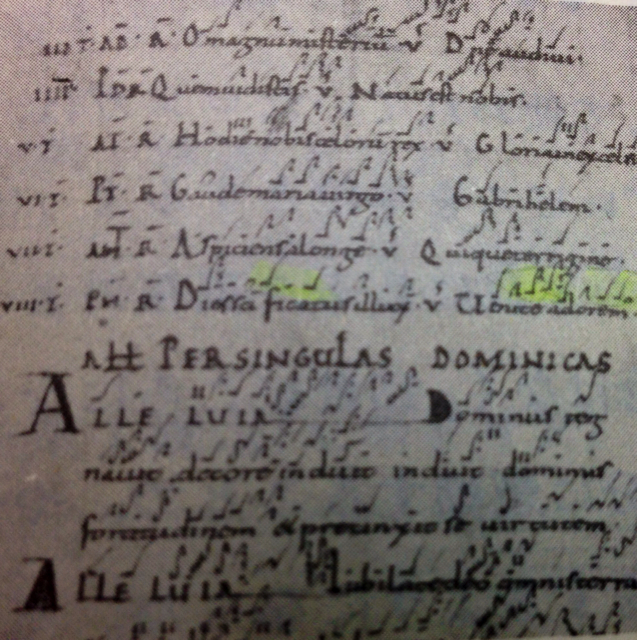 T AD R O magnum misteriu v D ne audivi.
IIII T R Quem vidistis v Natus est nobis.
V T R Hodie nobis celoru rex v Gloria in excelsis
VI T PT R Gaude maria virgo v Gabrihelem.
VII T R Aspiciens a longe v Quique terrigine.
VIII T R Dies s ficatus illux v Venite adorem
ALL PER SINGULAS DOMINICAS
ALLE LUIA Dominus reg
navit decore induit induit dominus
fortitudinem & precinxit se virtutem
ALLE LUIA Iubilate deo omnis terra